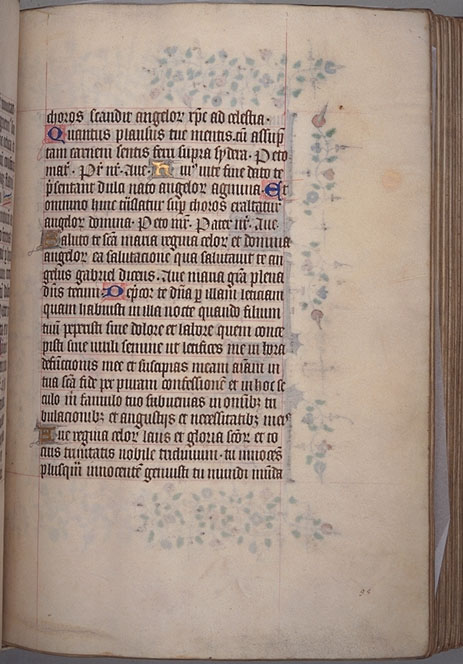 choros scandir angelor xpc ad celestia.
Quantus plausus tue mentis cū assūp
tam carnem sentis seni supra sydera. Peto
mar. Pr nr. Aue. Huiꝰ vite fine dato te
p̄sentant dulci nato angelor agmina. Et
omnino hinc trāslatur sup choros exaltatur
angelor domina. Peto mr. Pater nr. Aue
Saluto te scā maria regina celor et domina
angelor ea salutacione qua salutauit te an
gelus gabriel dicens. Aue maria gr̄a plena
dn̄s tecum. Deprecor te dn̄a p illam leticiam
quam habuisti in illa nocte quando filium
tuū peperisti sine dolore et labore quem conce
pisti sine virili semine ut letifices me in hora
defunctionis mee et suscipias meam aīam in
tua scā fide per puram confessionē et in hoc se
culo m̄ famulo tuo subuenias in omībꝫ tri
bulacionibꝫ et angustijs et necessitatibꝫ meis
Aue regina celor laus et gloria scōr et to
cius trinitatis nobile tricliniū. tu innocēs
plusqm̄ innocentē genuisti tu mundi mūda
94